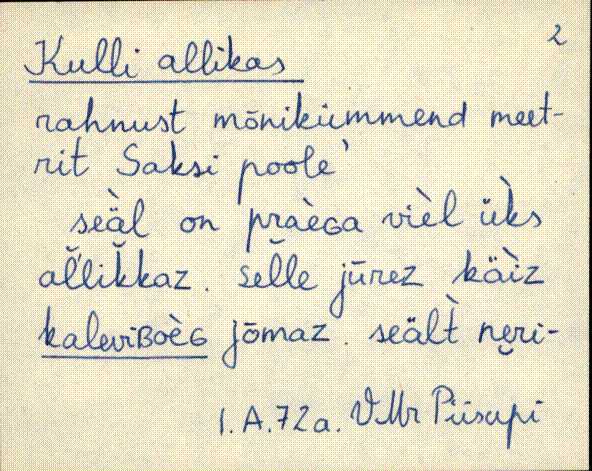 2
Kulli allikas
rahnust mõnikümmend meet-
rit Saksi poole
seäl on praèGa vièl üks
aľľikkaz. selle jūrez käìz
kaleviBoèG jōmaz. seält neri-
I.A.72a. VMr Piisupi